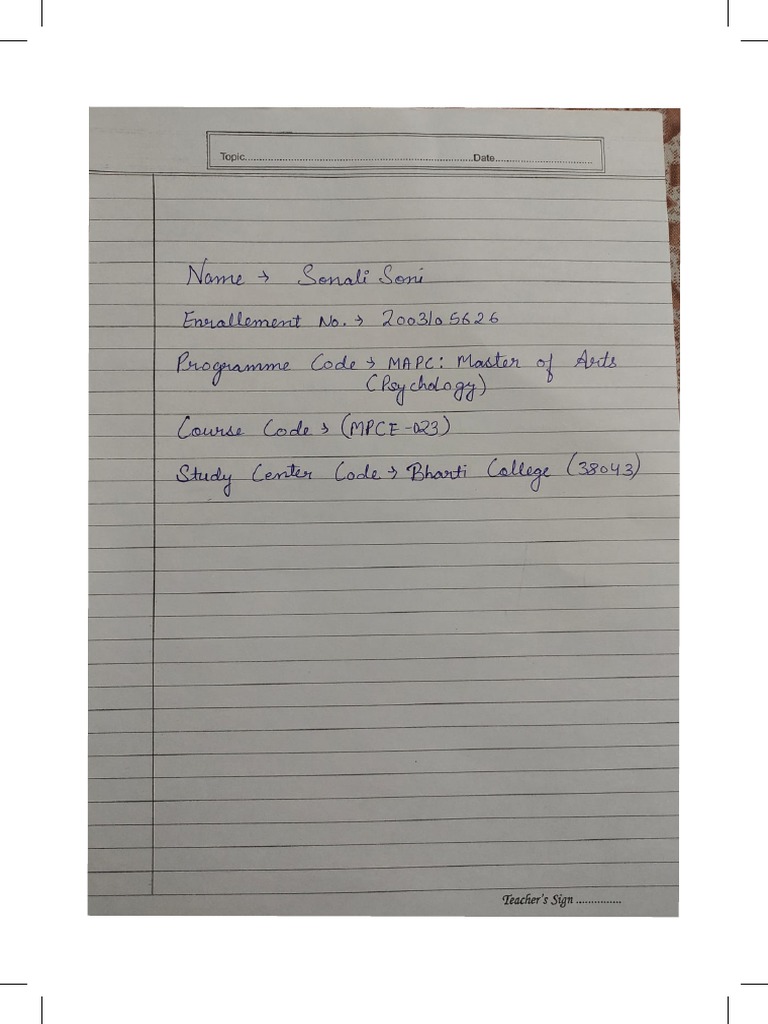 Topic.....................................................................Date..............................
Name → Sonali Soni
Enrallement No. → 2003105626
Programme Code → MAPC: Master of Arts
(Psychology)
Course Code → (MPCE-023)
Study Center Code → Bharti College (38043)
Teacher's Sign ...............